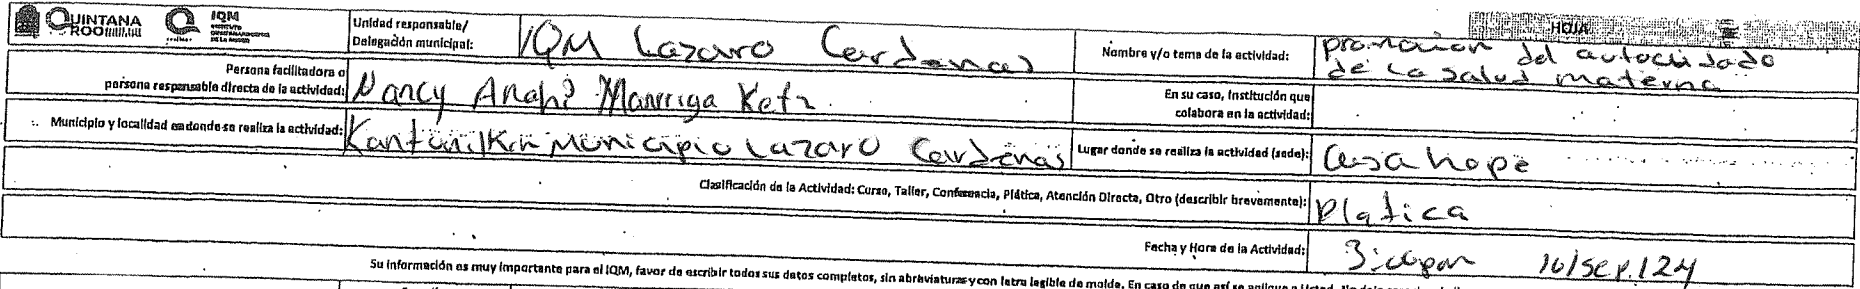 QUINTANA ROO
IQM
INSTITUTO QUINTANARROENSE DE LA MUJER
Unidad responsable/ Delegación municipal: IQM Lazaro Cardenas
HOJA
Nombre y/o tema de la actividad: promocion del autocuidado de la salud materna
Persona facilitadora o persona responsable directa de la actividad: Nancy Anahi
En su caso, Institución que colabora en la actividad:
Municipio y localidad en donde se realiza la actividad: Kantunilkin Municipio Lazaro Cardenas
Lugar donde se realiza la actividad (sede): Casa hope
Clasificación de la Actividad: Curso, Taller, Conferencia, Plática, Atención Directa, Otro (describir brevemente): Platica
Fecha y Hora de la Actividad: 3:00pm
Su información es muy importante para el IQM, favor de escribir todos sus datos completos, sin abreviaturas y con letra legible de molde. En caso de que así se